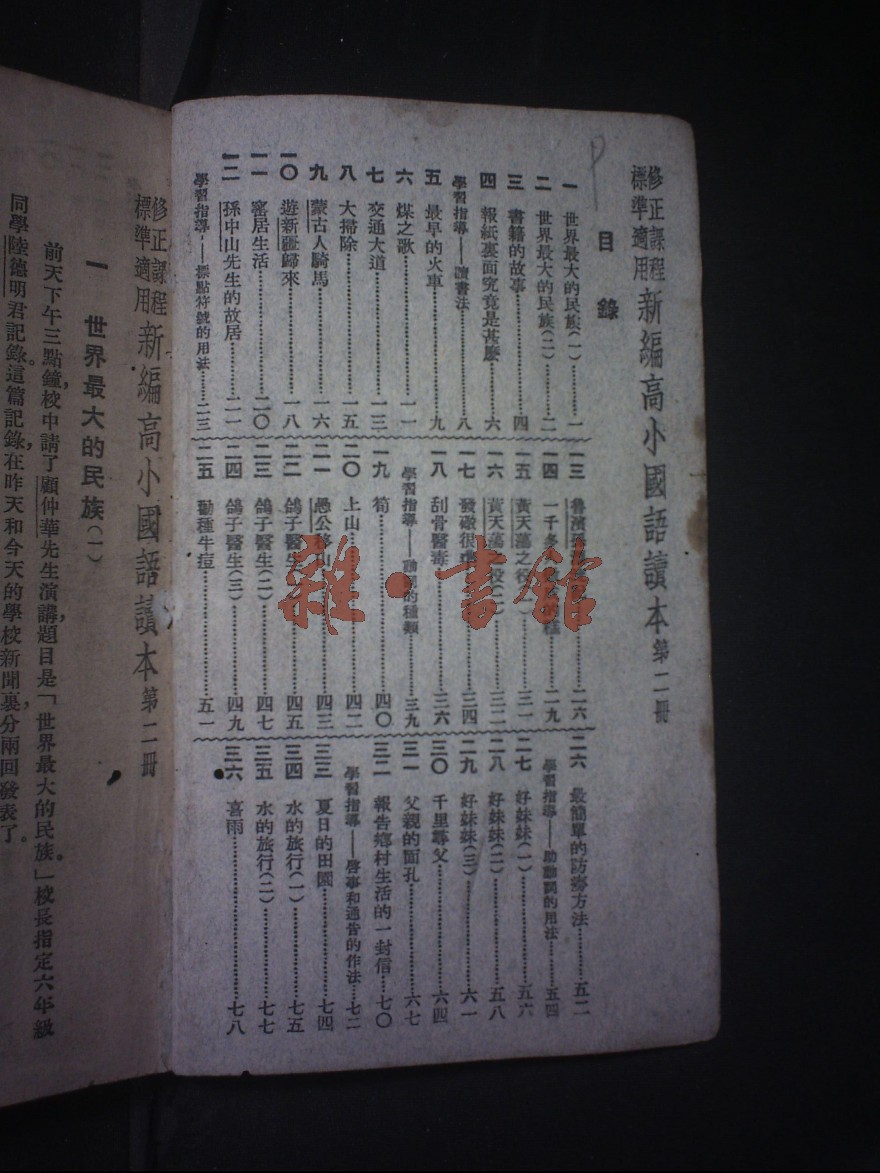 修正課程標準適用 新編高小國語讀本 第二冊
目錄
一 世界最大的民族(一)…………一
二 世界最大的民族(二)…………二
三 書籍的故事…………四
四 報紙裏面究竟是甚麼…………六
學習指導——讀書法…………八
五 最早的火車…………九
六 煤之歌…………一一
七 交通大道…………一三
八 大掃除…………一五
九 蒙古人騎馬…………一六
一〇 遊新疆歸來…………一八
一一 窰居生活…………二〇
一二 孫中山先生的故居…………二一
學習指導——標點符號的用法…………二三
一三 魯濱孫…………二六
一四 一千多…………二九
一五 黃天蕩之役(一)…………三一
一六 黃天蕩之役(二)…………三二
一七 發敵很…………三四
一八 刮骨醫毒…………三六
學習指導——動詞的種類…………三九
一九 筍…………四〇
二〇 上山…………四二
二一 愚公移山…………四三
二二 鴿子醫生(一)…………四五
二三 鴿子醫生(二)…………四七
二四 鴿子醫生(三)…………四九
二五 勸種牛痘…………五一
二六 最簡單的防癆方法…………五二
學習指導——助動詞的用法…………五四
二七 好妹妹(一)…………五六
二八 好妹妹(二)…………五八
二九 好妹妹(三)…………六一
三〇 千里尋父…………六四
三一 父親的面孔…………六七
三二 報告鄉村生活的一封信…………七〇
學習指導——啓事和通告的作法…………七二
三三 夏日的田園…………七四
三四 水的旅行(一)…………七五
三五 水的旅行(二)…………七七
三六 喜雨…………七八
雜·書館
修正課程標準適用 新編高小國語讀本 第二冊
一 世界最大的民族(一)
前天下午三點鐘，校中請了顧仲華先生演講，題目是「世界最大的民族」。校長指定六年級
同學陸德明君記錄。這篇記錄，在昨天和今天的學校新聞裏，分兩回發表了。